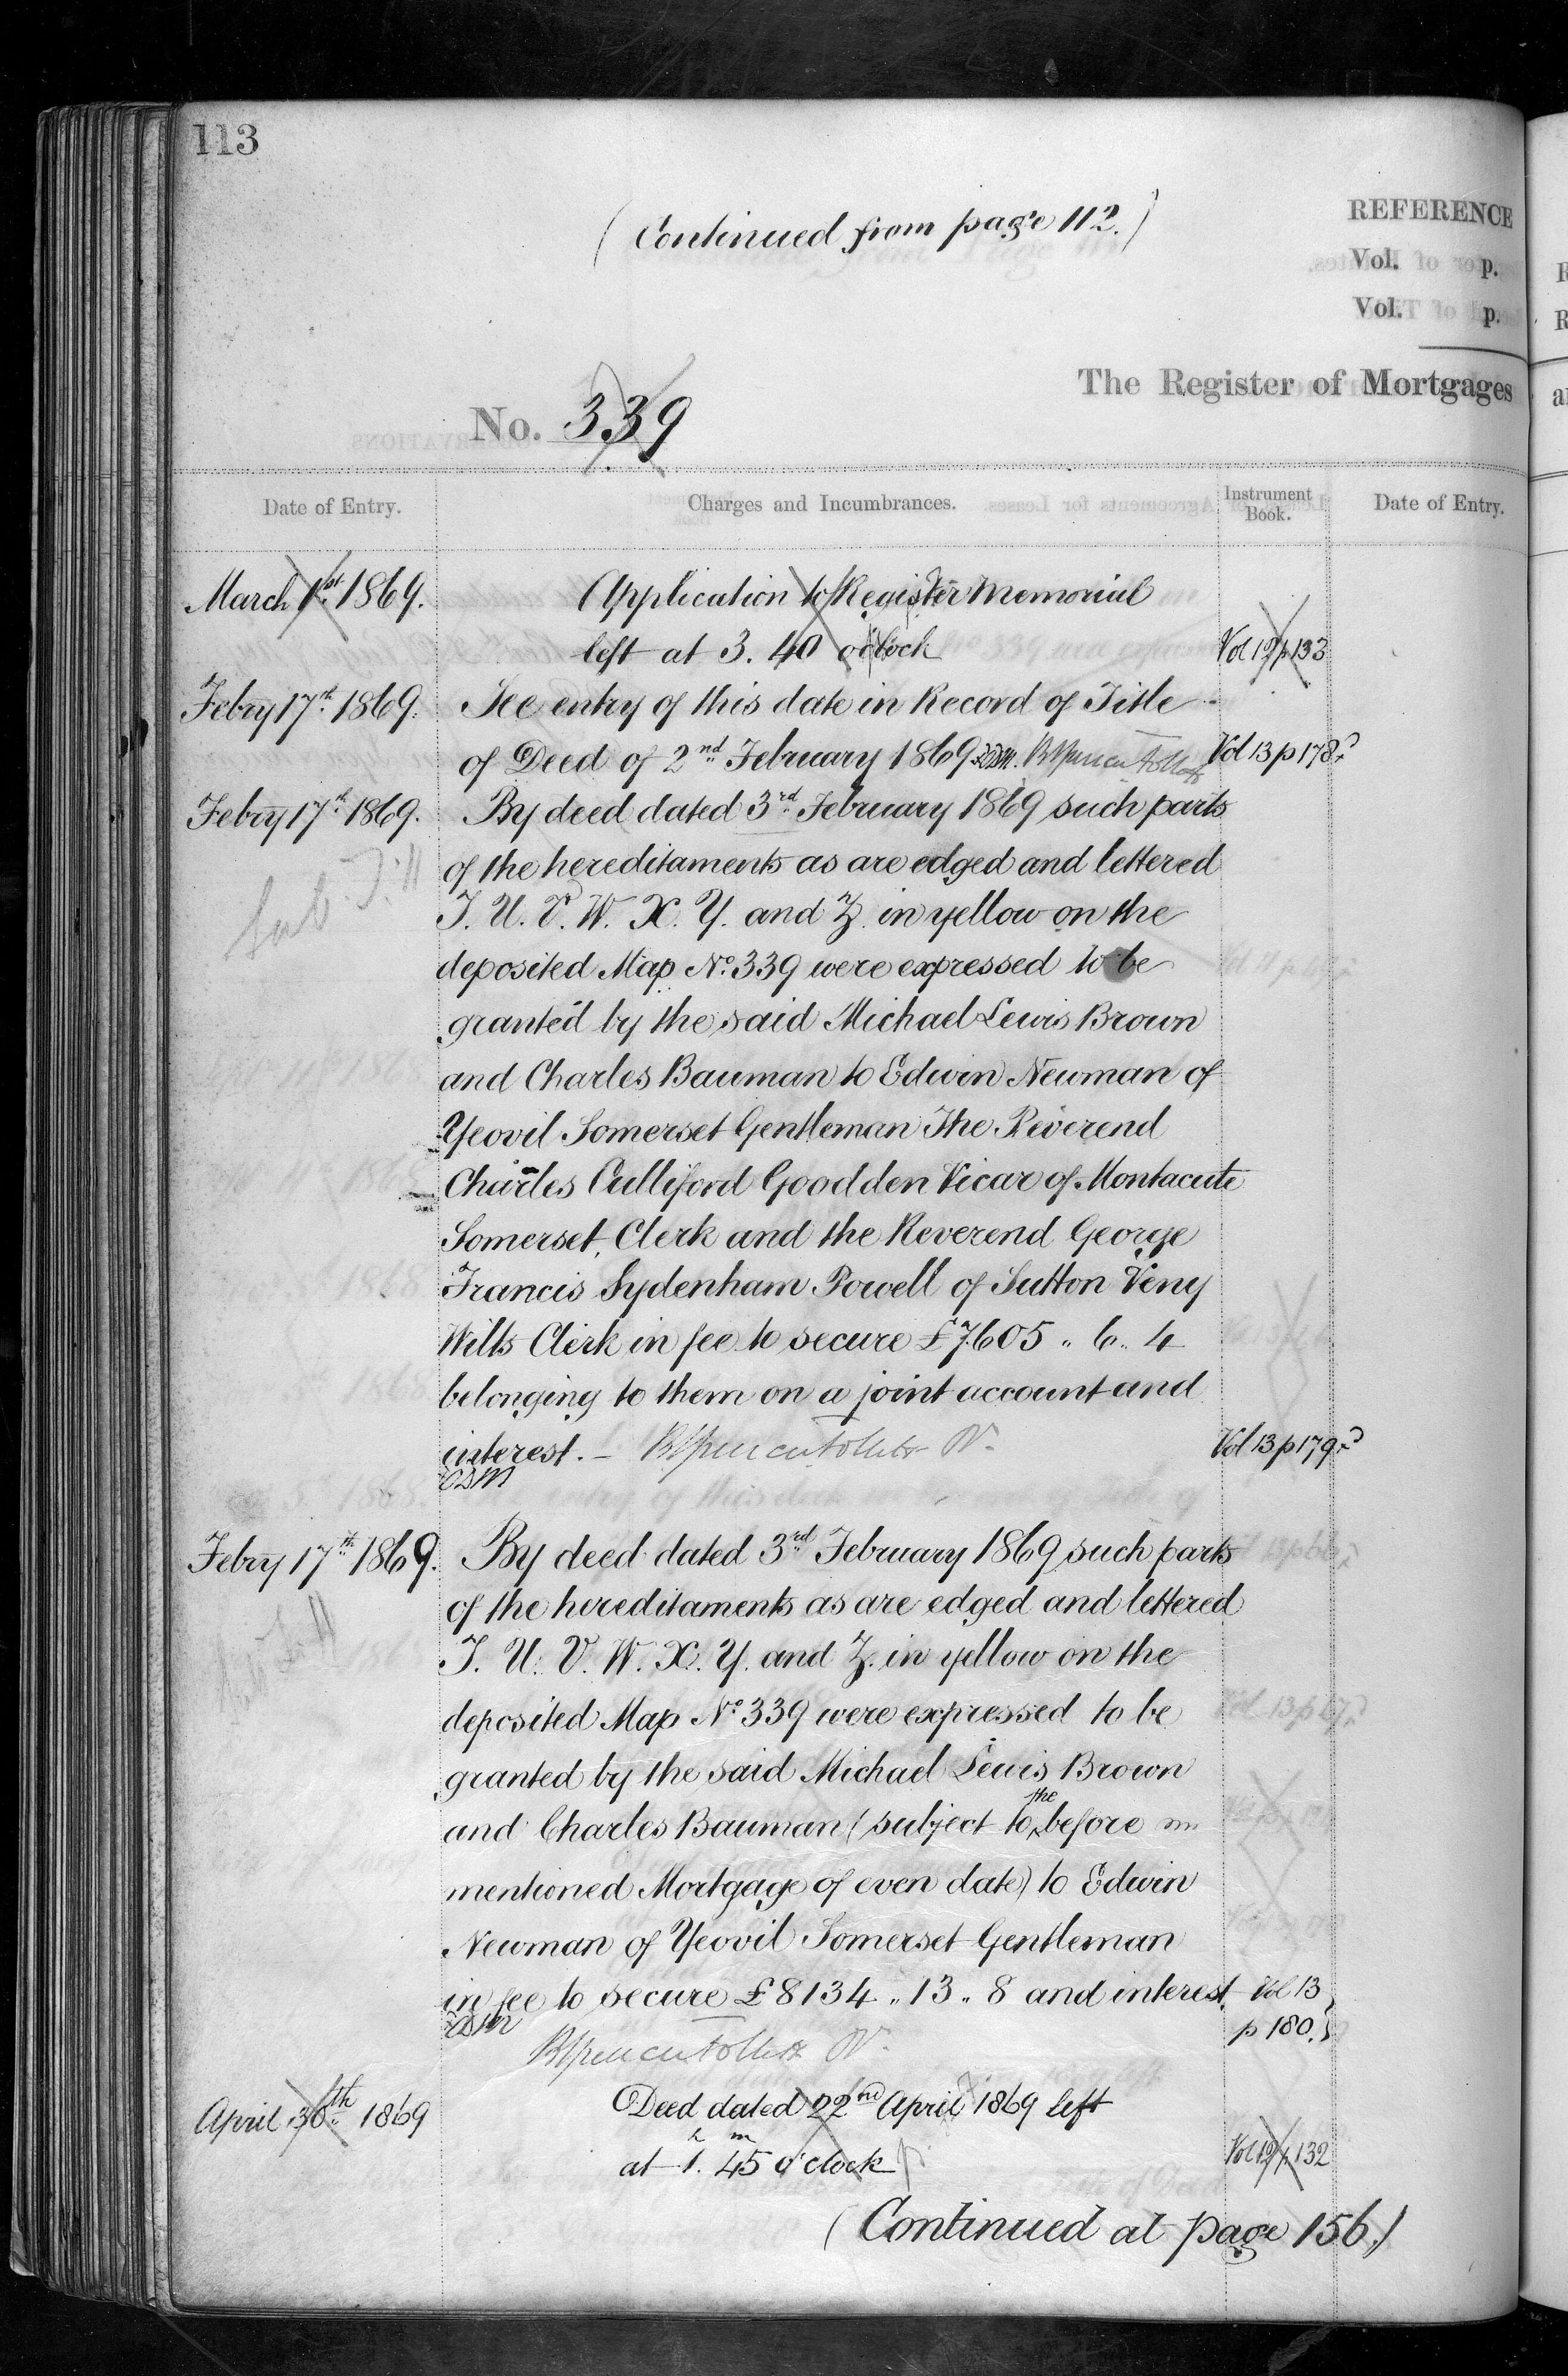 113
(Continued from page 112.)
REFERENCE
Vol. p.
Vol. p.
The Register of Mortgages
No. 339
Date of Entry. Charges and Incumbrances. Instrument Book. Date of Entry.
March 1st. 1869. Application to Register Memorial
left at 3. 40 o'clock Vol 12 p 133
Febry 17th. 1869. See entry of this date in Record of Title
of Deed of 2nd February 1869 Vol 13 p 178
Febry 17th. 1869. By deed dated 3rd February 1869 such parts
of the hereditaments as are edged and lettered
T. U. V. W. X. Y. and Z. in yellow on the
deposited Map No. 339 were expressed to be
granted by the said Michael Lewis Brown
and Charles Bauman to Edwin Newman of
Yeovil Somerset Gentleman The Reverend
Charles Culliford Goodden Vicar of Montacute
Somerset, Clerk and the Reverend George
Francis Sydenham Powell of Sutton Veny
Wilts Clerk in fee to secure £7605 " 6 " 4
belonging to them on a joint account and
interest. – Vol 13 p 179
Febry 17th. 1869. By deed dated 3rd February 1869 such parts
of the hereditaments as are edged and lettered
T. U. V. W. X. Y. and Z. in yellow on the
deposited Map No. 339 were expressed to be
granted by the said Michael Lewis Brown
and Charles Bauman (subject to the before
mentioned Mortgage of even date) to Edwin
Newman of Yeovil Somerset Gentleman
in fee to secure £8134 " 13 " 8 and interest. Vol 13
p 180.
April 30th. 1869 Deed dated 22nd April 1869 left
at 1h. 45m o'clock Vol 12 p 132
(Continued at page 156.)